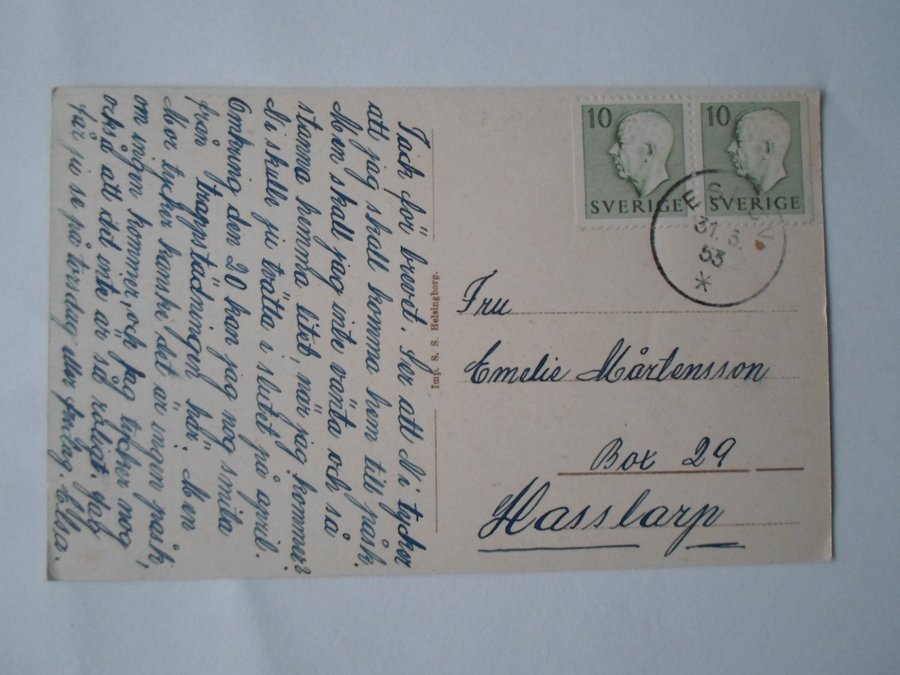 Tack för brevet. Ser att Ni tycker
att jag skall komma hem till påsk.
Men skall jag inte vänta och så
stanna hemma litet, när jag kommer?
Ni skulle ju tvätta i slutet på april.
Omkring den 20 kan jag nog smita
från trappstädningen här. Men
Mor tycker kanske det är ingen påsk,
om ingen kommer, och jag tycker nog
också att det inte är så roligt. Jag
får ju se på torsdag eller fredag. Elsa.
Imp. S. S. Helsingborg.
10 10
SVERIGE SVERIGE
31. 3.
53
*
Fru
Emelie Mårtensson
Box 29
Hasslarp